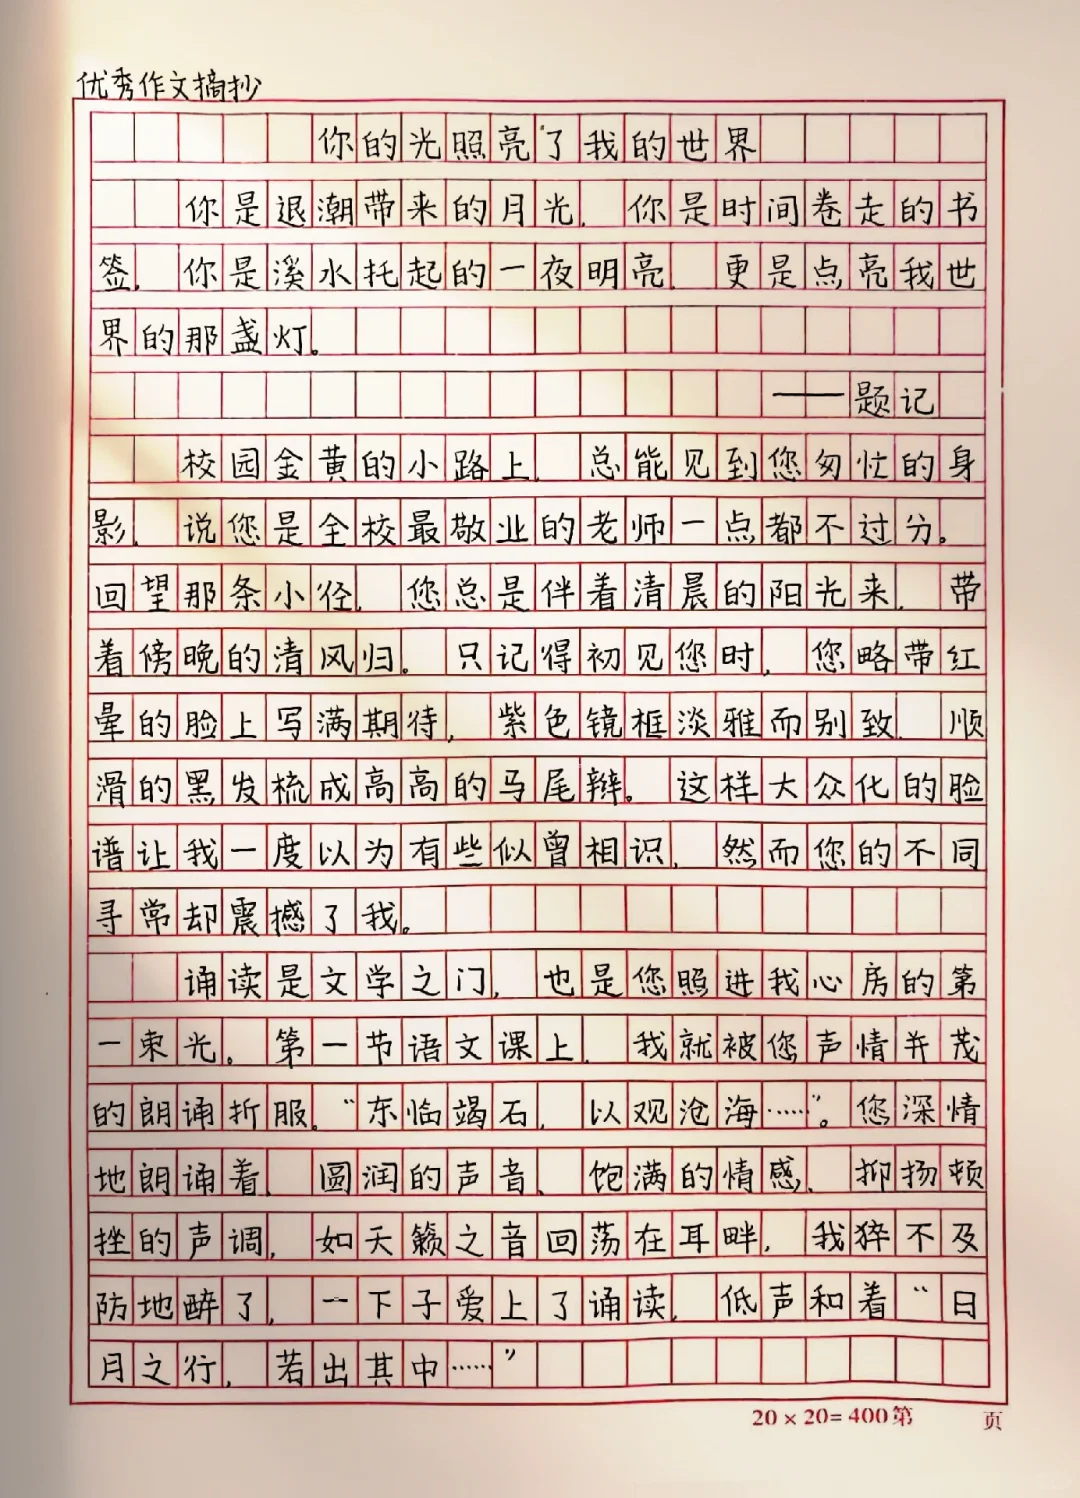 优秀作文摘抄
你的光照亮了我的世界
你是退潮带来的月光，你是时间卷走的书
签，你是溪水托起的一夜明亮，更是点亮我世
界的那盏灯。
——题记
校园金黄的小路上，总能见到您匆忙的身
影，说您是全校最敬业的老师一点都不过分。
回望那条小径，您总是伴着清晨的阳光来，带
着傍晚的清风归。只记得初见您时，您略带红
晕的脸上写满期待，紫色镜框淡雅而别致，顺
滑的黑发梳成高高的马尾辫。这样大众化的脸
谱让我一度以为有些似曾相识，然而您的不同
寻常却震撼了我。
诵读是文学之门，也是您照进我心房的第
一束光。第一节语文课上，我就被您声情并茂
的朗诵折服。“东临竭石，以观沧海……”。您深情
地朗诵着，圆润的声音、饱满的情感、抑扬顿
挫的声调，如天籁之音回荡在耳畔，我猝不及
防地醉了，一下子爱上了诵读，低声和着“日
月之行，若出其中……”
20×20=400第 页